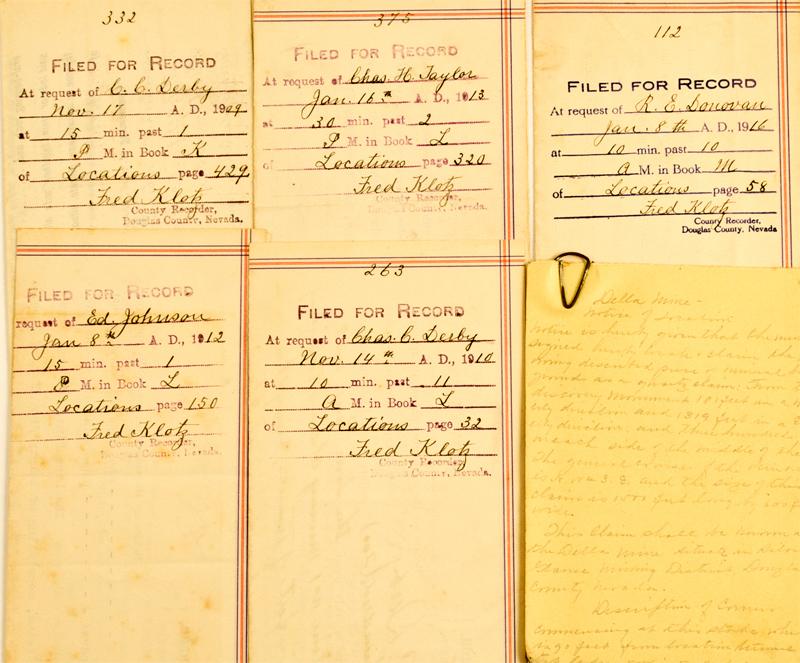 332
FILED FOR RECORD
At request of C. C. Derby
Nov. 17 A. D., 1909
at 15 min. past 1
P M. in Book K
of Locations page 429
Fred Klotz
County Recorder,
Douglas County, Nevada.
375
FILED FOR RECORD
At request of Chas. H. Taylor
Jan. 16th A. D., 1913
at 30 min. past 2
P M. in Book L
of Locations page 320
Fred Klotz
County Recorder,
Douglas County, Nevada.
112
FILED FOR RECORD
At request of R. E. Donovan
Jan. 8th A. D., 1916
at 10 min. past 10
A M. in Book M
of Locations page 58
Fred Klotz
County Recorder,
Douglas County, Nevada
FILED FOR RECORD
request of Ed. Johnson
Jan 8th A. D., 1912
15 min. past 1
P M. in Book L
Locations page 150
Fred Klotz
County Recorder,
Douglas County, Nevada.
263
FILED FOR RECORD
At request of Chas. C. Derby
Nov. 14th A. D., 1910
at 10 min. past 11
A M. in Book L
of Locations page 32
Fred Klotz
County Recorder,
Douglas County, Nevada.
Della Mine -
Notice of Location
Notice is hereby given that the
piece of mineral
ground as a quartz claim:
discovery Monument 101 feet in a
direction and 319 feet in a S
direction and three hundred
side of the middle of
The general course of the
and the size of this
claim is 1500 feet long by 600
wide.
This Claim shall be known as
the Della Mine situate in
Mining District, Douglas
County Nevada.
Description of Corners
Commencing at this stake,
feet from location